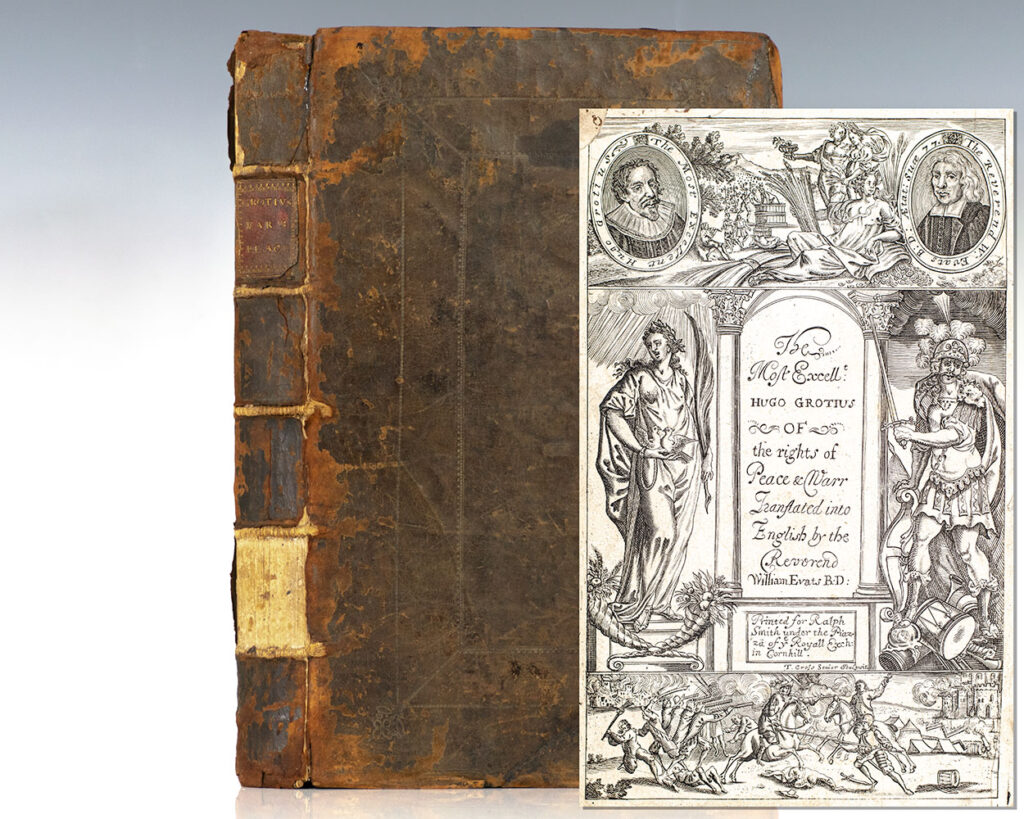 GROTIUS
WAR
PEAC
The Most Excellent Hugo Grotius.
The Reverend W: Evats B.D. Ætat: Suæ 77.
The
Most Excell.t
HUGO GROTIUS
OF
the rights of
Peace & Warr
Tranſlated into
Engliſh by the
Reverend
William Evats B.D:
Printed for Ralph
Smith under the Piaz-
za of yͤ Royall Exch:
in Cornhill.
T. Croſs Senior Sculpsit